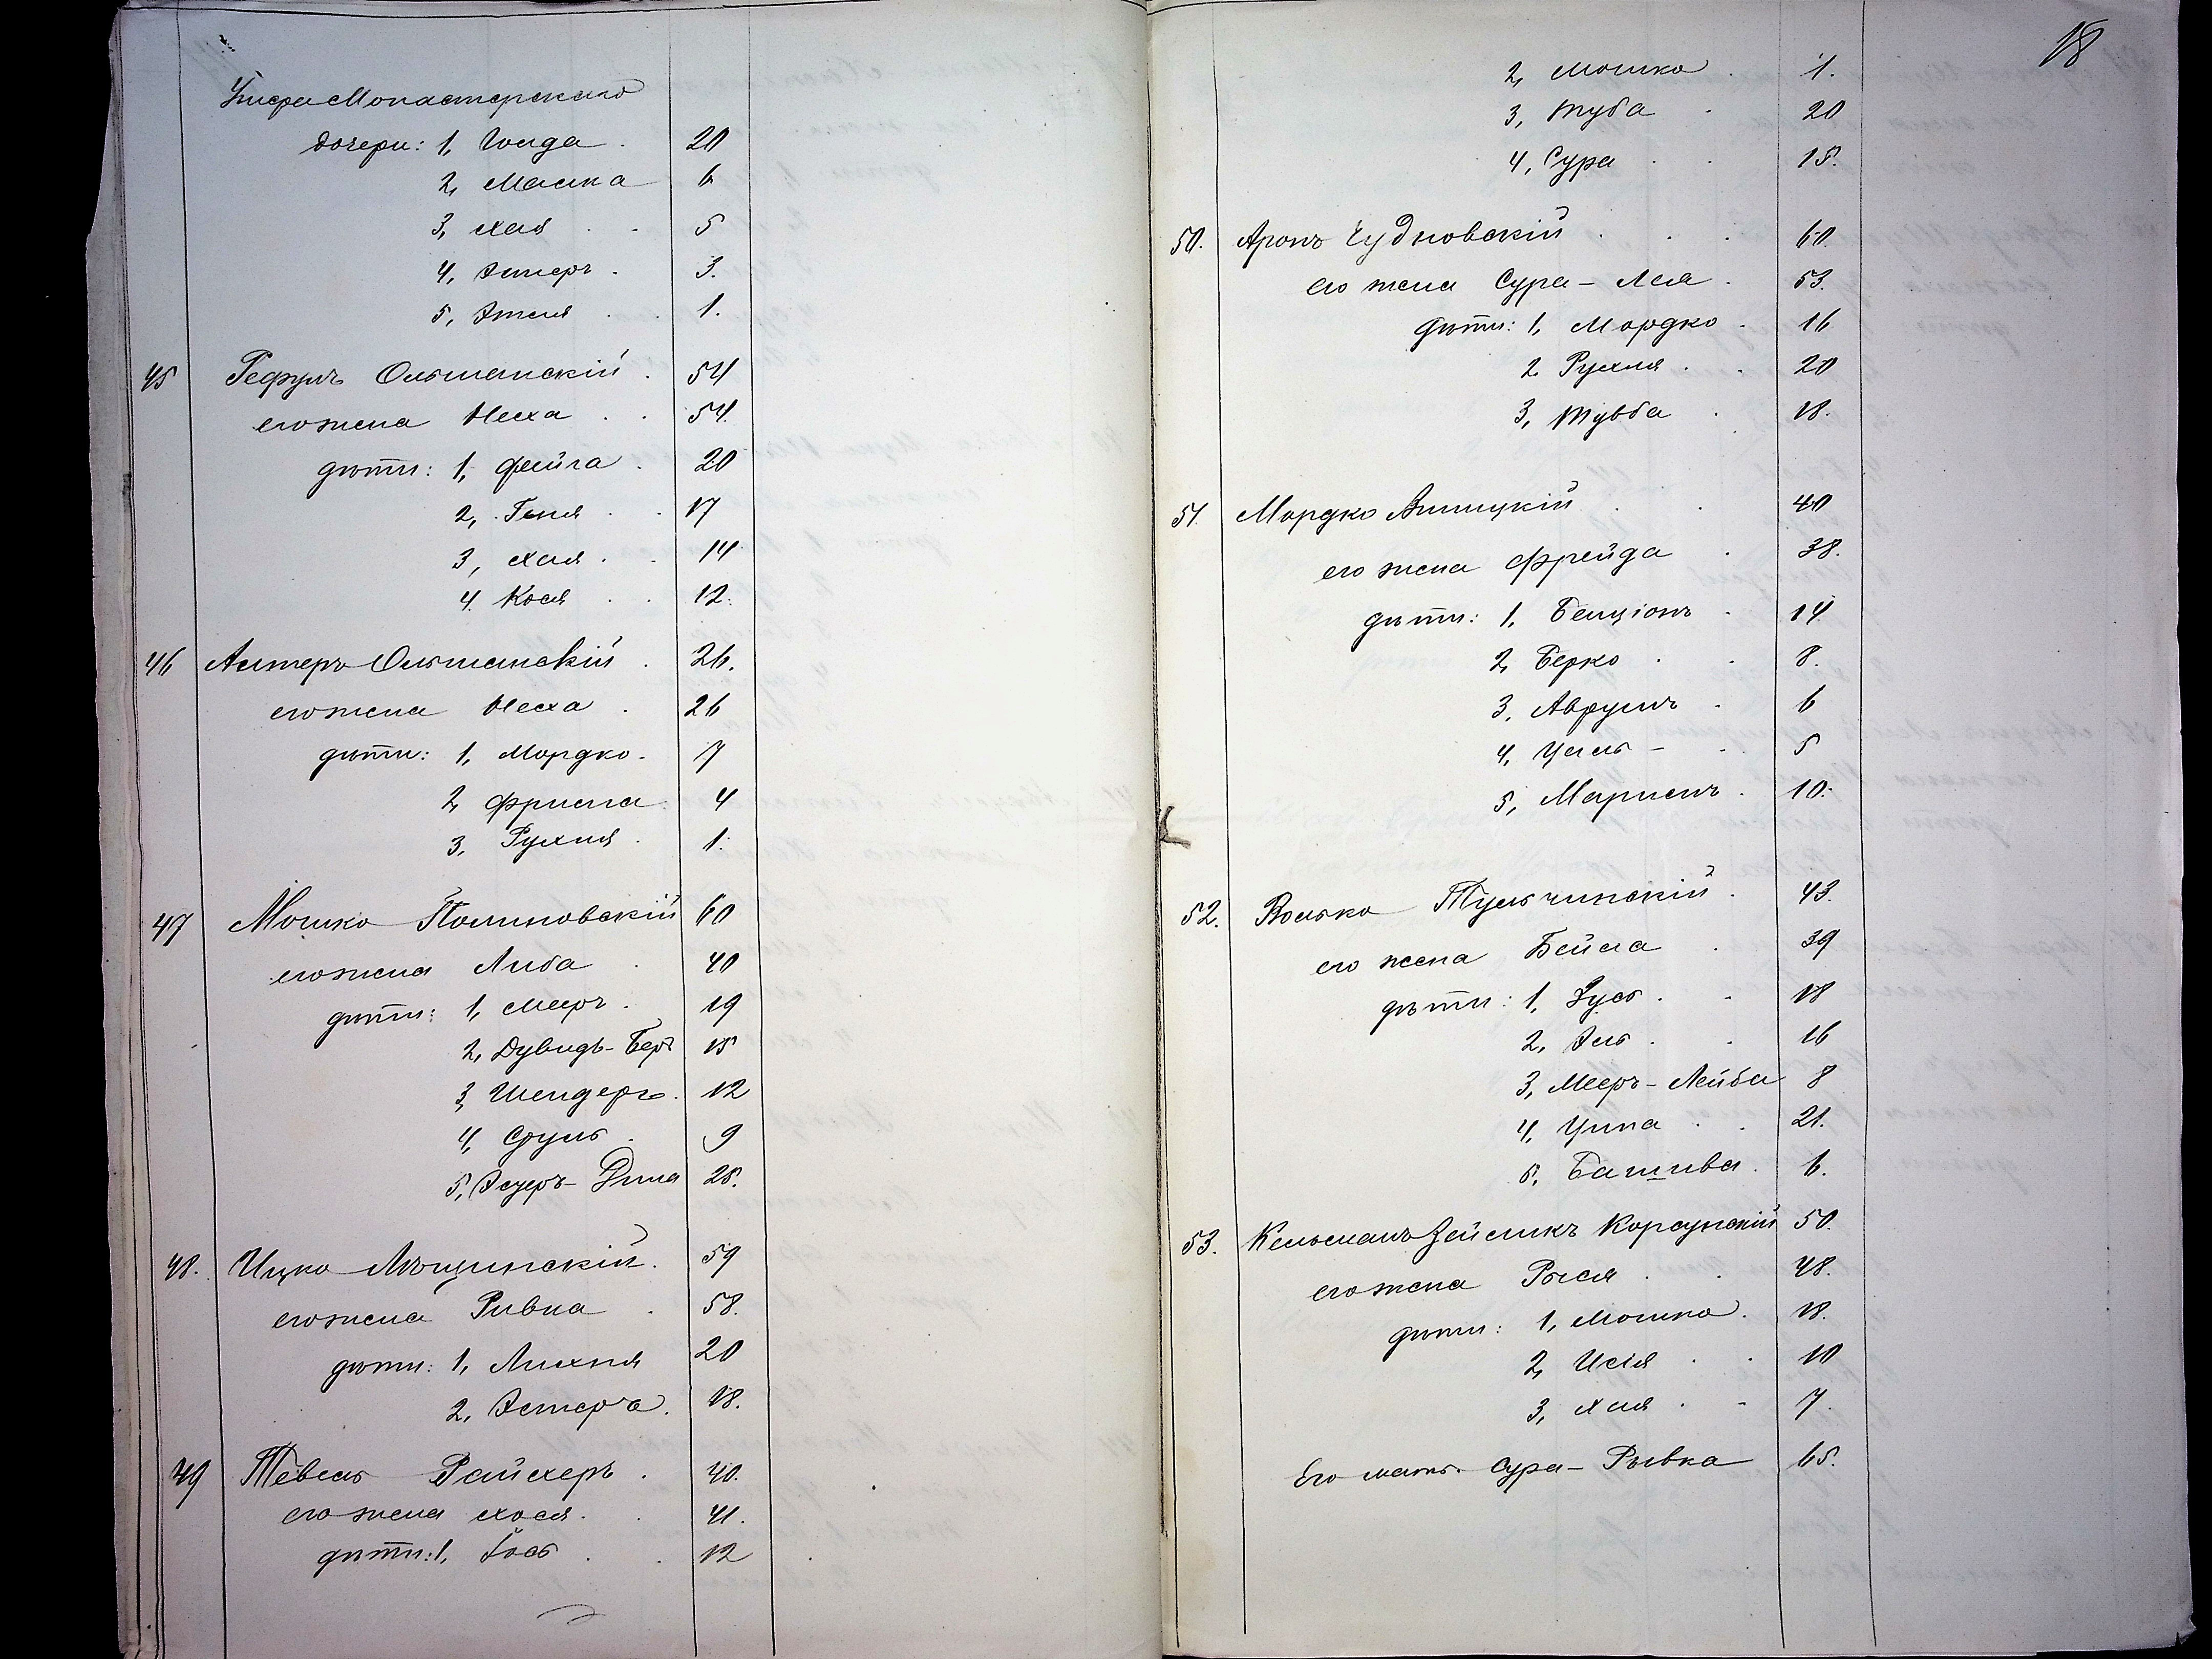 Монастерскаго
дочери: 1, Голда . 20
2, Малка 6
3, Хая . . 5
4, Эстеръ . 3.
5, Этля . . 1.
45 Рефулъ Ольшанскій . 54
его жена Неха . . 54.
дѣти: 1, Фейга . 20
2, Геня . . 17
3, Хая . . 14
4. Кося . . 12.
46 Алтеръ Ольшанскій . 26.
его жена Неха . 26
дѣти: 1, Мордко . 7
2, Фрима 4
3, Рухля . 1.
47 Мошко Полиновскій 60
его жена Либа . 40
дѣти: 1, Мееръ . 19
2, Дувидъ-Беръ 15
3, Шендеръ . 12
4, Сруль . 9
5, Эстеръ-Дина 25.
48. Ицко Лѣщинскій . 59
его жена Ривка . 58.
дѣти: 1, Лихня 20
2, Эстеръ . 18.
49 Тевель Райхеръ . 40.
его жена Хося . . 41.
дѣти: 1, Іось . . 12
18
2, Мошко . 1.
3, Туба . 20
4, Сура . . 15.
50. Аронъ Чудновскій . . . 60.
его жена Сура-Лея . 53.
дѣти: 1, Мордко . 16
2. Рухля . . 20
3, Тувба . 18.
51. Мордко Липицкій . . 40
его жена Фрейда . 38.
дѣти: 1, Бенціонъ . 14.
2, Берко . . 8.
3, Аврумъ . 6
4, Циль - . 5
5, Марьемъ . 10.
52. Волько Тульчинскій . 43.
его жена Бейла . 39
дѣти: 1, Зусь . . 18
2, Эль . . 16
3, Мееръ-Лейба 8
4, Ципа . . 21.
5, Башива . 6.
53. Кельманъ Зейликъ Корсунскій 50.
его жена Рыся . . 48.
дѣти: 1, Мошко . 18.
2, Исія . . 10
3, Хая . - 7.
Его мать Сура-Рывка 65.